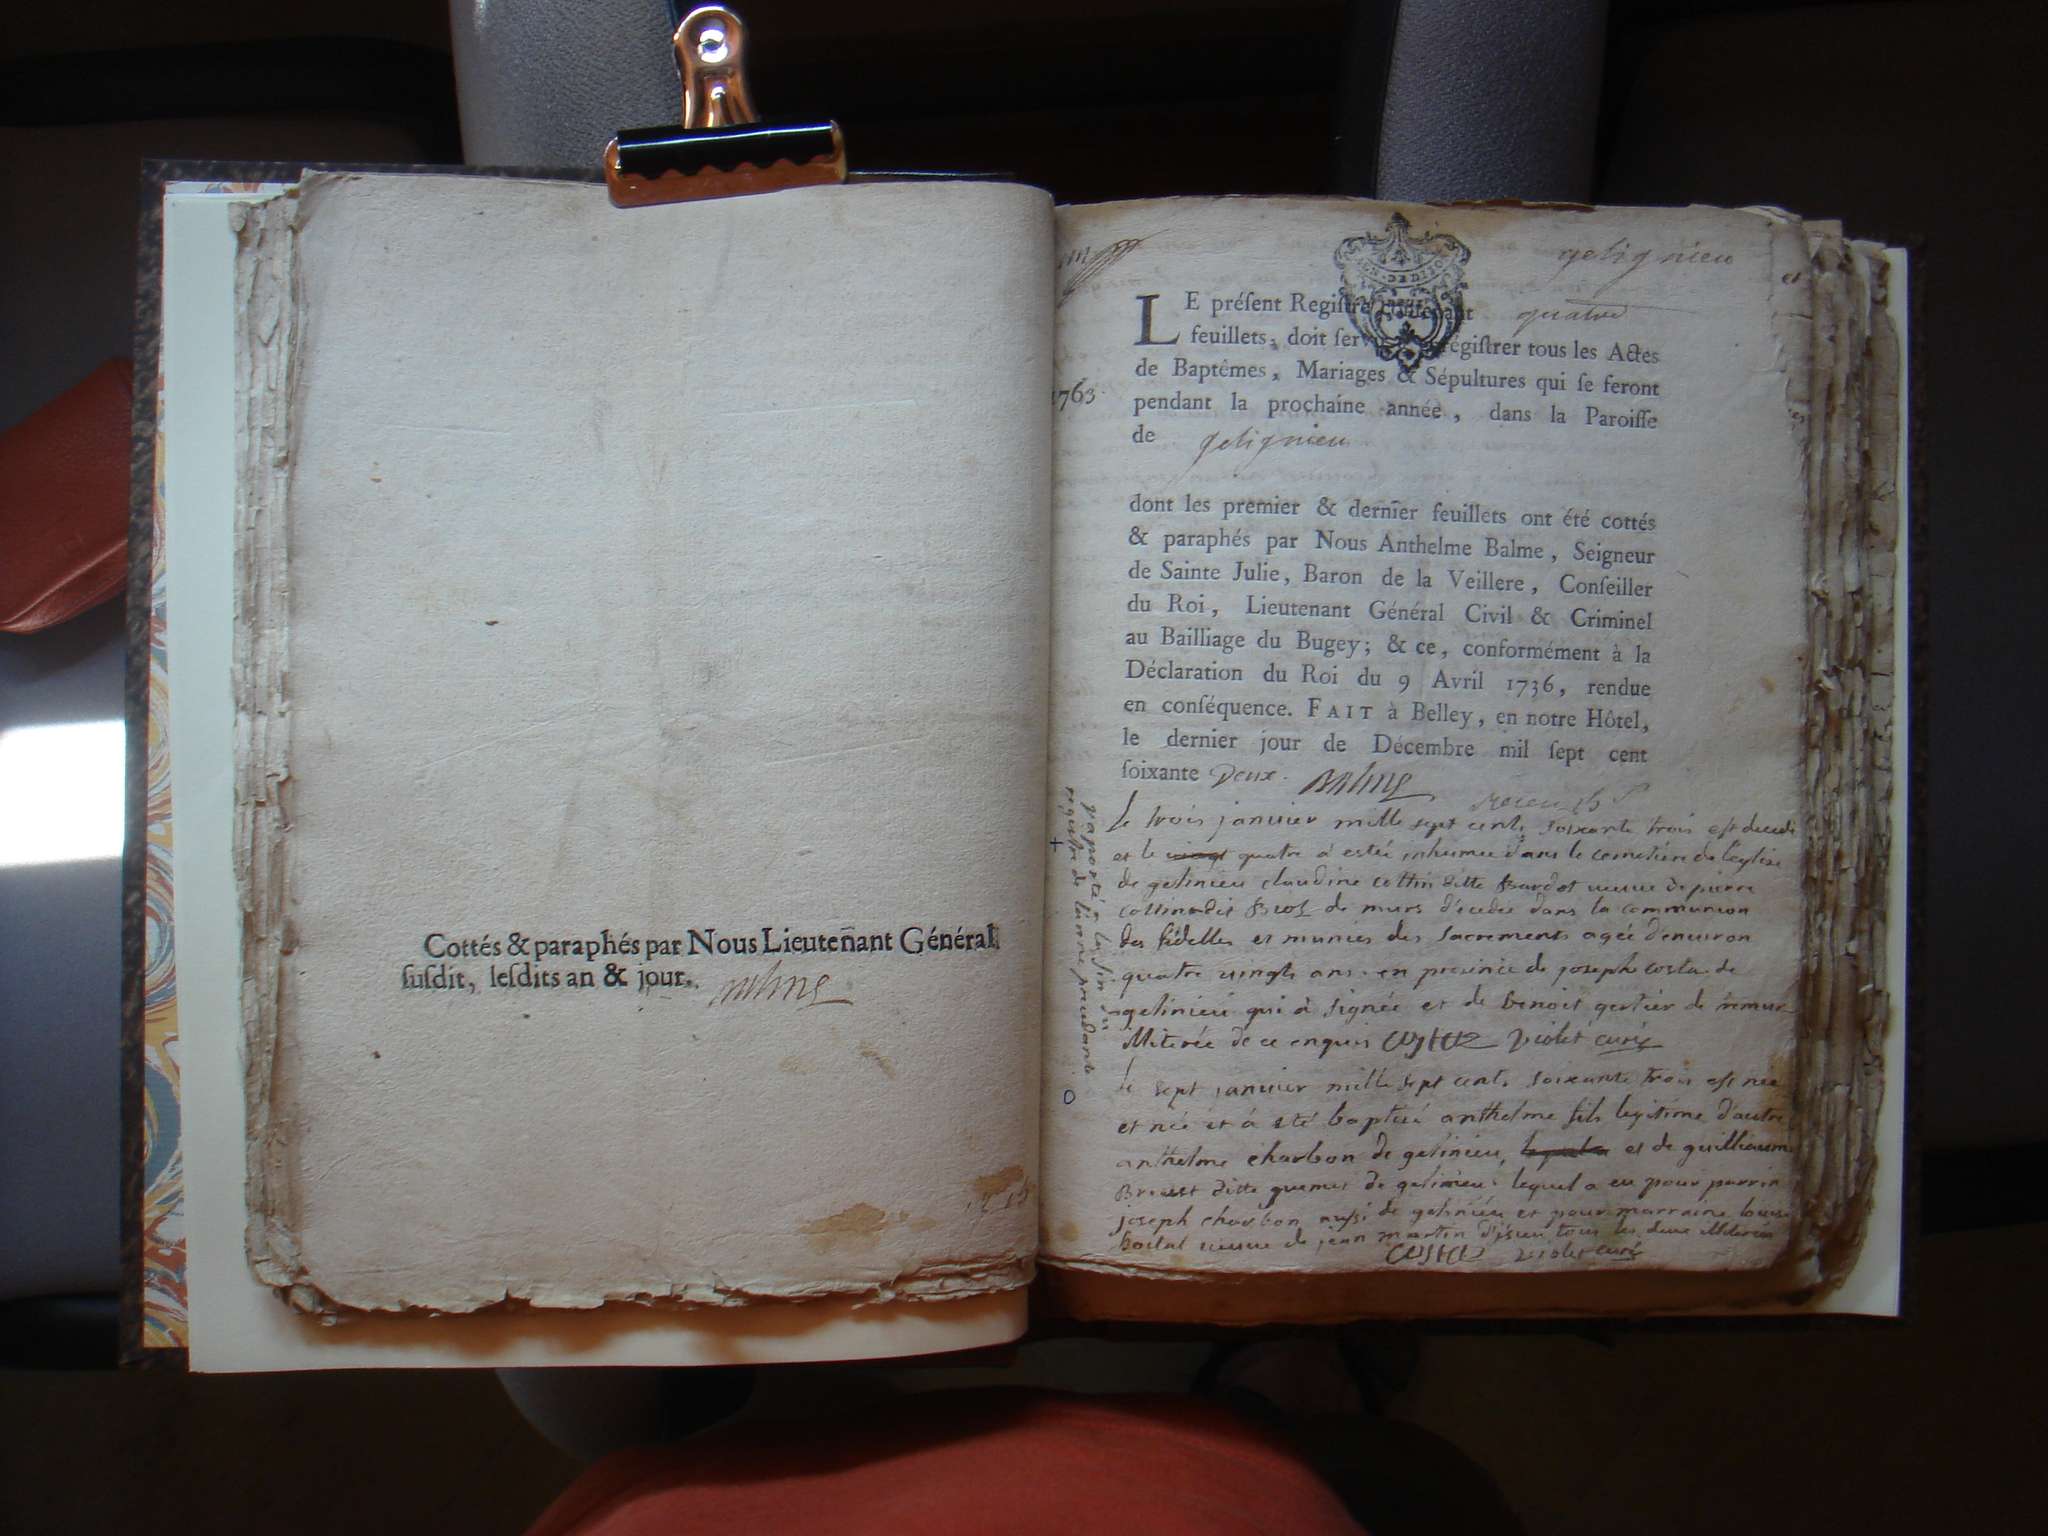 Cottés & paraphés par Nous Lieuteñant Général
ſuſdit, leſdits an & jour. Balme
gelignieu
LE préſent Regiſtre contenant quatre
feuillets, doit ſervir régiſtrer tous les Actes
de Baptêmes, Mariages & Sépultures qui ſe feront
1763
pendant la prochaine année, dans la Paroiſſe
de gelignieu
dont les premier & dernier feuillets ont été cottés
& paraphés par Nous Anthelme Balme, Seigneur
de Sainte Julie, Baron de la Veillere, Conſeiller
du Roi, Lieutenant Général Civil & Criminel
au Bailliage du Bugey; & ce, conformément à la
Déclaration du Roi du 9 Avril 1736, rendue
en conſéquence. FAIT à Belley, en notre Hôtel,
le dernier jour de Décembre mil ſept cent
ſoixante Deux. Balme
rapporté a la fin du
registre de l'année precedante
le trois janvier mille sept cents soixante trois est decedé
et le vingt quatre à estée inhumée dans le cemetiere de l'eglise
de gelinieu claudine cottin ditte Bardot veuve de pierre
de murs decedée dans la communion
des fidelles et munies des sacrements agée d'environ
quatre vingts ans en presence de joseph costaz de
gelinieu qui à signée et de benoit gertier de
illiterée de ce enquis costaz violet curé
le sept janvier mille sept cents soixante trois est née
et née et à eté baptisé anthelme fils legitime d'autre
anthelme charbon de gelinieu, et de guilliaume
ditte de gelinieu lequel a eu pour parrin
joseph charbon aussi de gelinieu et pour marraine louise
veuve de jean martin d'isieu tous les deux illiterés
costaz violet curé